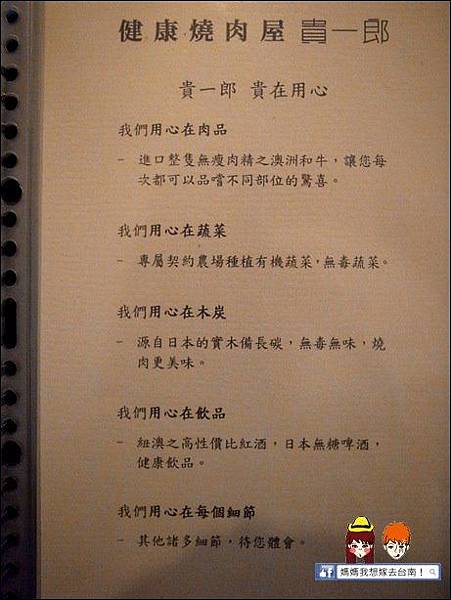 健康燒肉屋 貴一郎
貴一郎 貴在用心
我們用心在肉品
- 進口整隻無瘦肉精之澳洲和牛，讓您每
次都可以品嚐不同部位的驚喜。
我們用心在蔬菜
- 專屬契約農場種植有機蔬菜，無毒蔬菜。
我們用心在木炭
- 源自日本的實木備長碳，無毒無味，燒
肉更美味。
我們用心在飲品
- 紐澳之高性價比紅酒，日本無糖啤酒，
健康飲品。
我們用心在每個細節
- 其他諸多細節，待您體會。
媽媽我想嫁去台南！